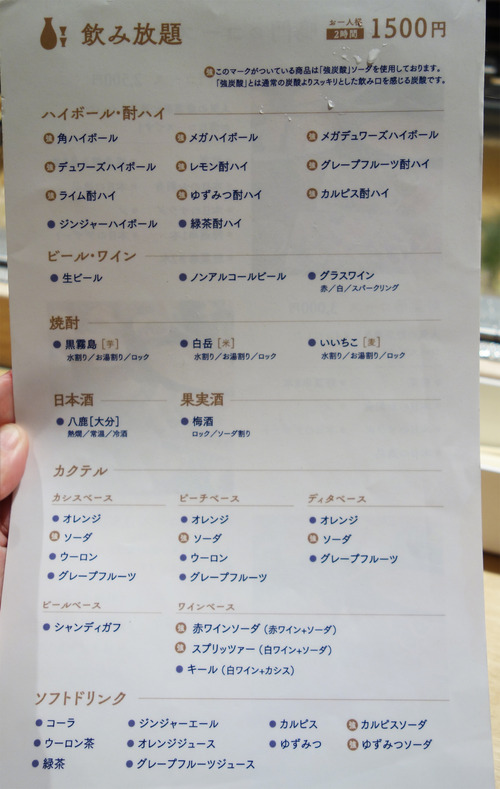 飲み放題
お一人様
2時間
1500円
強このマークがついている商品は「強炭酸」ソーダを使用しております。
「強炭酸」とは通常の炭酸よりスッキリとした飲み口を感じる炭酸です。
ハイボール・酎ハイ
強 角ハイボール 強 メガハイボール 強 メガデュワーズハイボール
強 デュワーズハイボール 強 レモン酎ハイ 強 グレープフルーツ酎ハイ
強 ライム酎ハイ 強 ゆずみつ酎ハイ 強 カルピス酎ハイ
● ジンジャーハイボール ● 緑茶酎ハイ
ビール・ワイン
● 生ビール ● ノンアルコールビール ● グラスワイン
赤/白/スパークリング
焼酎
● 黒霧島[芋] ● 白岳[米] ● いいちこ[麦]
水割り/お湯割り/ロック 水割り/お湯割り/ロック 水割り/お湯割り/ロック
日本酒 果実酒
● 八鹿[大分] ● 梅酒
熱燗/常温/冷酒 ロック/ソーダ割り
カクテル
カシスベース ピーチベース ディタベース
● オレンジ ● オレンジ ● オレンジ
強 ソーダ 強 ソーダ 強 ソーダ
● ウーロン ● ウーロン ● グレープフルーツ
● グレープフルーツ ● グレープフルーツ
ビールベース ワインベース
● シャンディガフ 強 赤ワインソーダ(赤ワイン+ソーダ)
強 スプリッツァー(白ワイン+ソーダ)
● キール(白ワイン+カシス)
ソフトドリンク
● コーラ ● ジンジャーエール ● カルピス 強 カルピスソーダ
● ウーロン茶 ● オレンジジュース ● ゆずみつ 強 ゆずみつソーダ
● 緑茶 ● グレープフルーツジュース